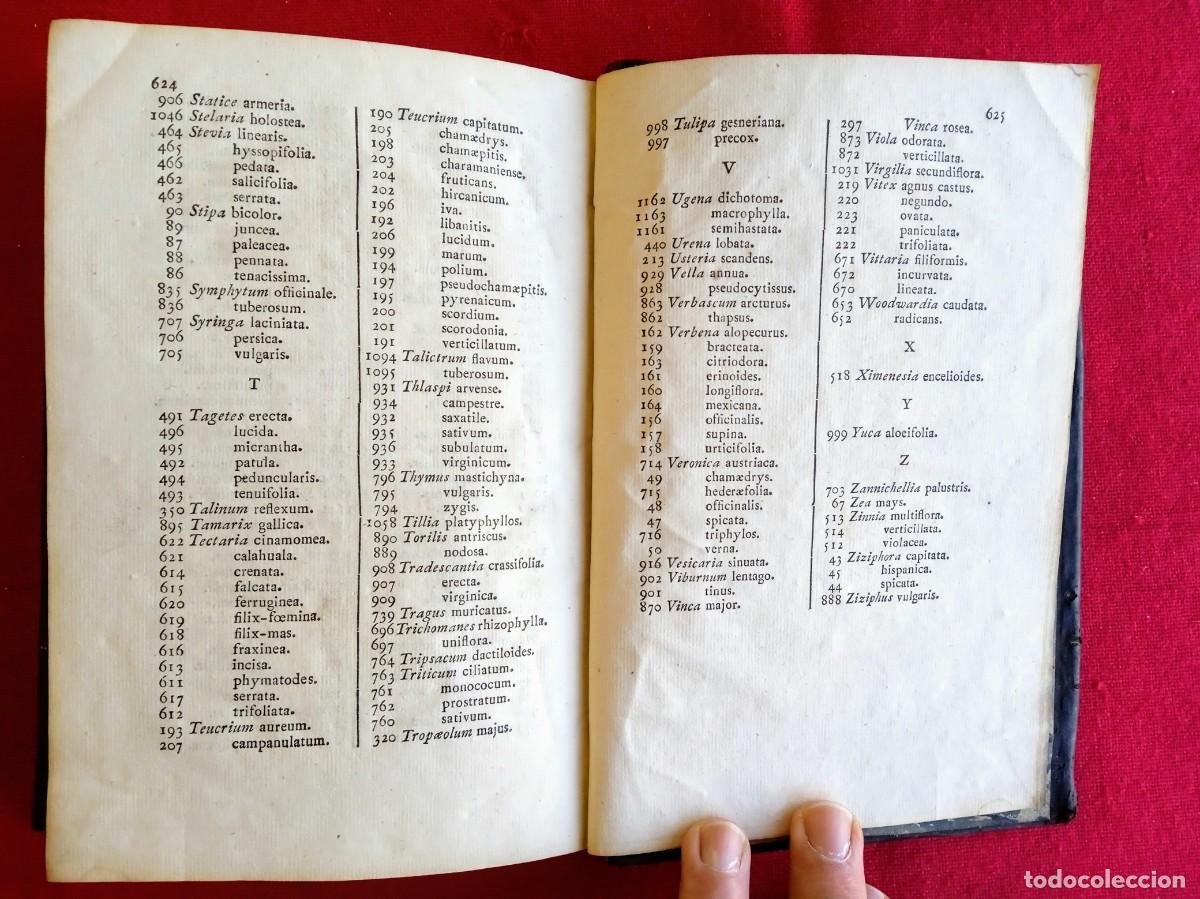 624
906 Statice armeria.
1046 Stelaria holostea.
464 Stevia linearis.
465 hyssopifolia.
466 pedata.
462 salicifolia.
463 serrata.
90 Stipa bicolor.
89 juncea.
87 paleacea.
88 pennata.
86 tenacissima.
835 Symphytum officinale.
836 tuberosum.
707 Syringa laciniata.
706 persica.
705 vulgaris.
T
491 Tagetes erecta.
496 lucida.
495 micrantha.
492 patula.
494 peduncularis.
493 tenuifolia.
350 Talinum reflexum.
895 Tamarix gallica.
622 Tectaria cinamomea.
621 calahuala.
614 crenata.
615 falcata.
620 ferruginea.
619 filix-fœmina.
618 filix-mas.
616 fraxinea.
613 incisa.
611 phymatodes.
617 serrata.
612 trifoliata.
193 Teucrium aureum.
207 campanulatum.
190 Teucrium capitatum.
205 chamædrys.
198 chamæpitis.
203 charamaniense.
204 fruticans.
202 hircanicum.
196 iva.
192 libanitis.
206 lucidum.
199 marum.
194 polium.
197 pseudochamæpitis.
195 pyrenaicum.
200 scordium.
201 scorodonia.
191 verticillatum.
1094 Talictrum flavum.
1095 tuberosum.
931 Thlaspi arvense.
934 campestre.
932 saxatile.
935 sativum.
936 subulatum.
933 virginicum.
796 Thymus mastichyna.
795 vulgaris.
794 zygis.
1058 Tillia platyphyllos.
890 Torilis antriscus.
889 nodosa.
908 Tradescantia crassifolia.
907 erecta.
909 virginica.
739 Tragus muricatus.
696 Trichomanes rhizophylla.
697 uniflora.
764 Tripsacum dactiloides.
763 Triticum ciliatum.
761 monococum.
762 prostratum.
760 sativum.
320 Tropæolum majus.
625
998 Tulipa gesneriana.
997 precox.
V
1162 Ugena dichotoma.
1163 macrophylla.
1161 semihastata.
440 Urena lobata.
213 Usteria scandens.
929 Vella annua.
928 pseudocytissus.
863 Verbascum arcturus.
862 thapsus.
162 Verbena alopecurus.
159 bracteata.
163 citriodora.
161 erinoides.
160 longiflora.
164 mexicana.
156 officinalis.
157 supina.
158 urticifolia.
714 Veronica austriaca.
49 chamædrys.
715 hederæfolia.
48 officinalis.
47 spicata.
716 triphylos.
50 verna.
916 Vesicaria sinuata.
902 Viburnum lentago.
901 tinus.
870 Vinca major.
297 Vinca rosea.
873 Viola odorata.
872 verticillata.
1031 Virgilia secundiflora.
219 Vitex agnus castus.
220 negundo.
223 ovata.
221 paniculata.
222 trifoliata.
671 Vittaria filiformis.
672 incurvata.
670 lineata.
653 Woodwardia caudata.
652 radicans.
X
518 Ximenesia encelioides.
Y
999 Yuca aloeifolia.
Z
703 Zannichellia palustris.
67 Zea mays.
513 Zinnia multiflora.
514 verticillata.
512 violacea.
43 Ziziphora capitata.
45 hispanica.
44 spicata.
888 Ziziphus vulgaris.
todocoleccion